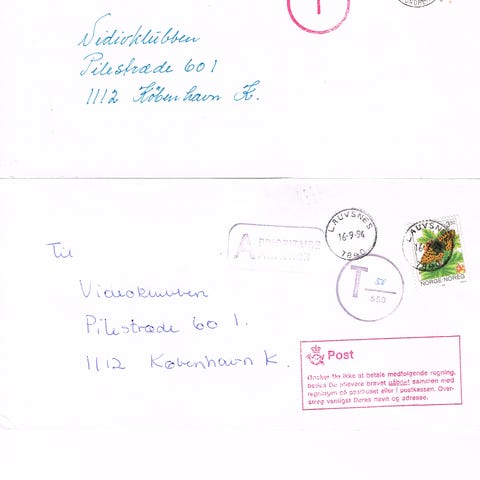 T
Vidioklubben
Pilestræde 601
1112 København K.
LAUVSNES
16-9-94
7890
LAUVSNES
A PRIORITAIRE
Til
T 50
550
NORGE NOREG
Videoklubben
Pilestræde 60 1.
1112 København K.
Post
Ønsker De ikke at betale medfølgende regning,
bedes De aflevere brevet uåbnet sammen med
regningen på posthuset eller i postkassen. Over-
streg venligst Deres navn og adresse.